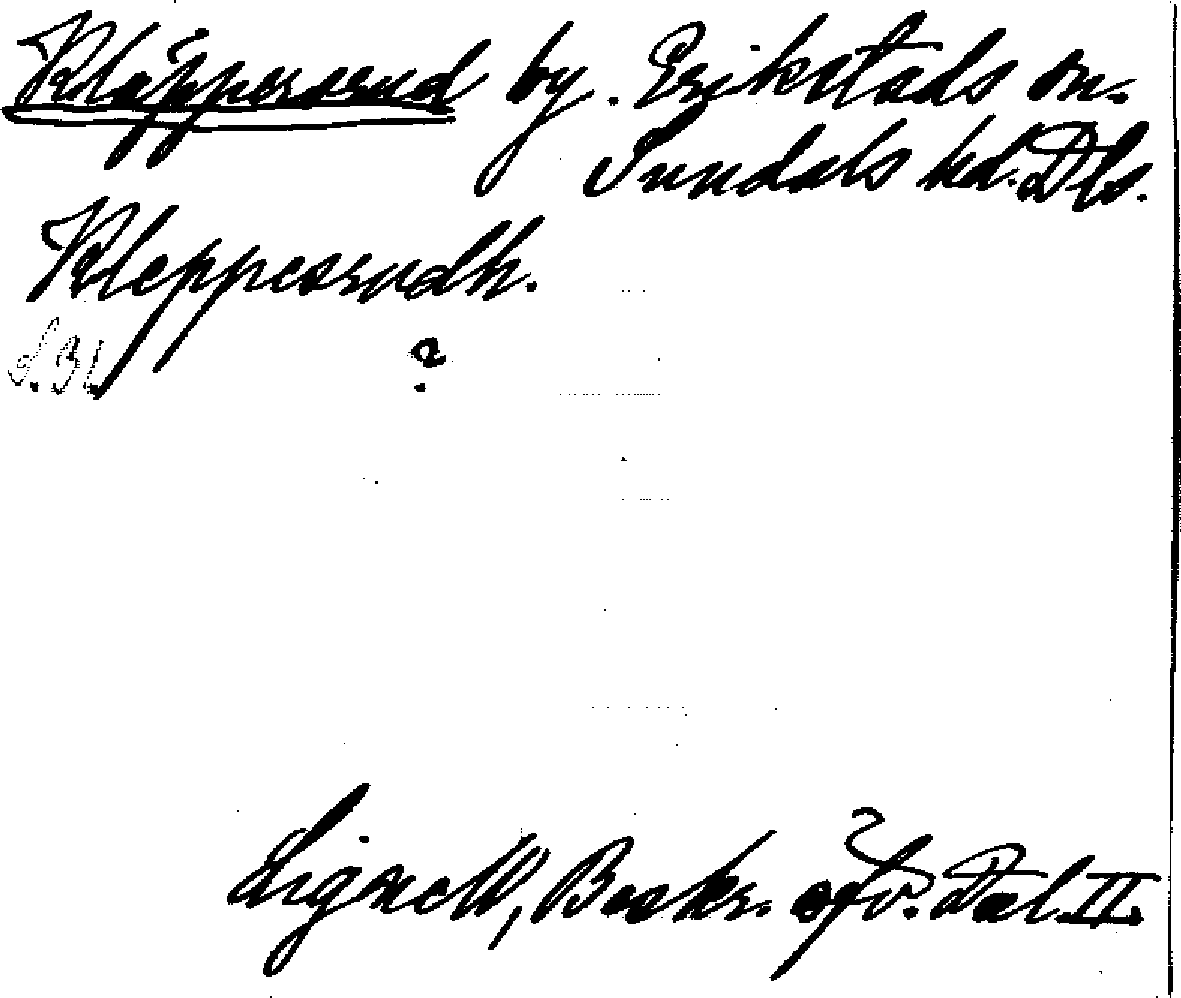 Kläppersrud by. Erikstads sn.
Sundals hd. Dls.
Kleppesrudh.
S. 31
?
Lignell, Beskr. öfv. Dal. II.